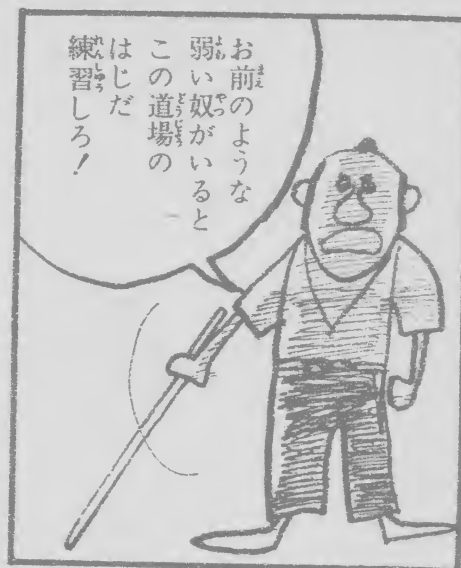 お前のような
弱い奴がいると
この道場の
はじだ
練習しろ！